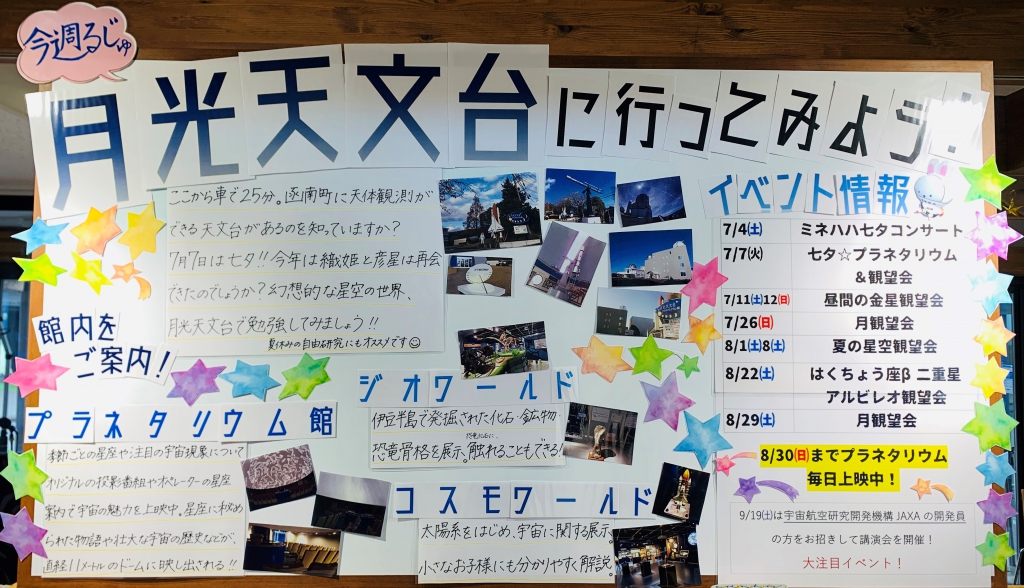 今週るじゅ
月光天文台に行ってみよう!
ここから車で25分。函南町に天体観測が
できる天文台があるのを知っていますか?
7月7日は七夕!!今年は織姫と彦星は再会
できたのでしょうか?幻想的な星空の世界、
月光天文台で勉強してみましょう!!
夏休みの自由研究にもオススメです☺
館内を
ご案内!
プラネタリウム館
季節ごとの星座や注目の宇宙現象について
オリジナルの投影番組やオペレーターの星座
案内で宇宙の魅力を上映中。星座に秘め
られた物語や壮大な宇宙の歴史などが、
直径11メートルのドームに映し出される!!
ジオワールド
伊豆半島で発掘された化石・鉱物・
恐竜骨格を展示、触れることもできる!
コスモワールド
太陽系をはじめ、宇宙に関する展示。
小さなお子様にも分かりやすく解説。
イベント情報
7/4(土) ミネハハ七タコンサート
7/7(火) 七タ☆プラネタリウム
&観望会
7/11(土)12(日) 昼間の金星観望会
7/26(日) 月観望会
8/1(土)8(土) 夏の星空観望会
8/22(土) はくちょう座β 二重星
アルビレオ観望会
8/29(土) 月観望会
8/30(日)までプラネタリウム
毎日上映中!
9/19(土)は宇宙航空研究開発機構 JAXA の開発員
の方をお招きして講演会を開催!
大注目イベント!